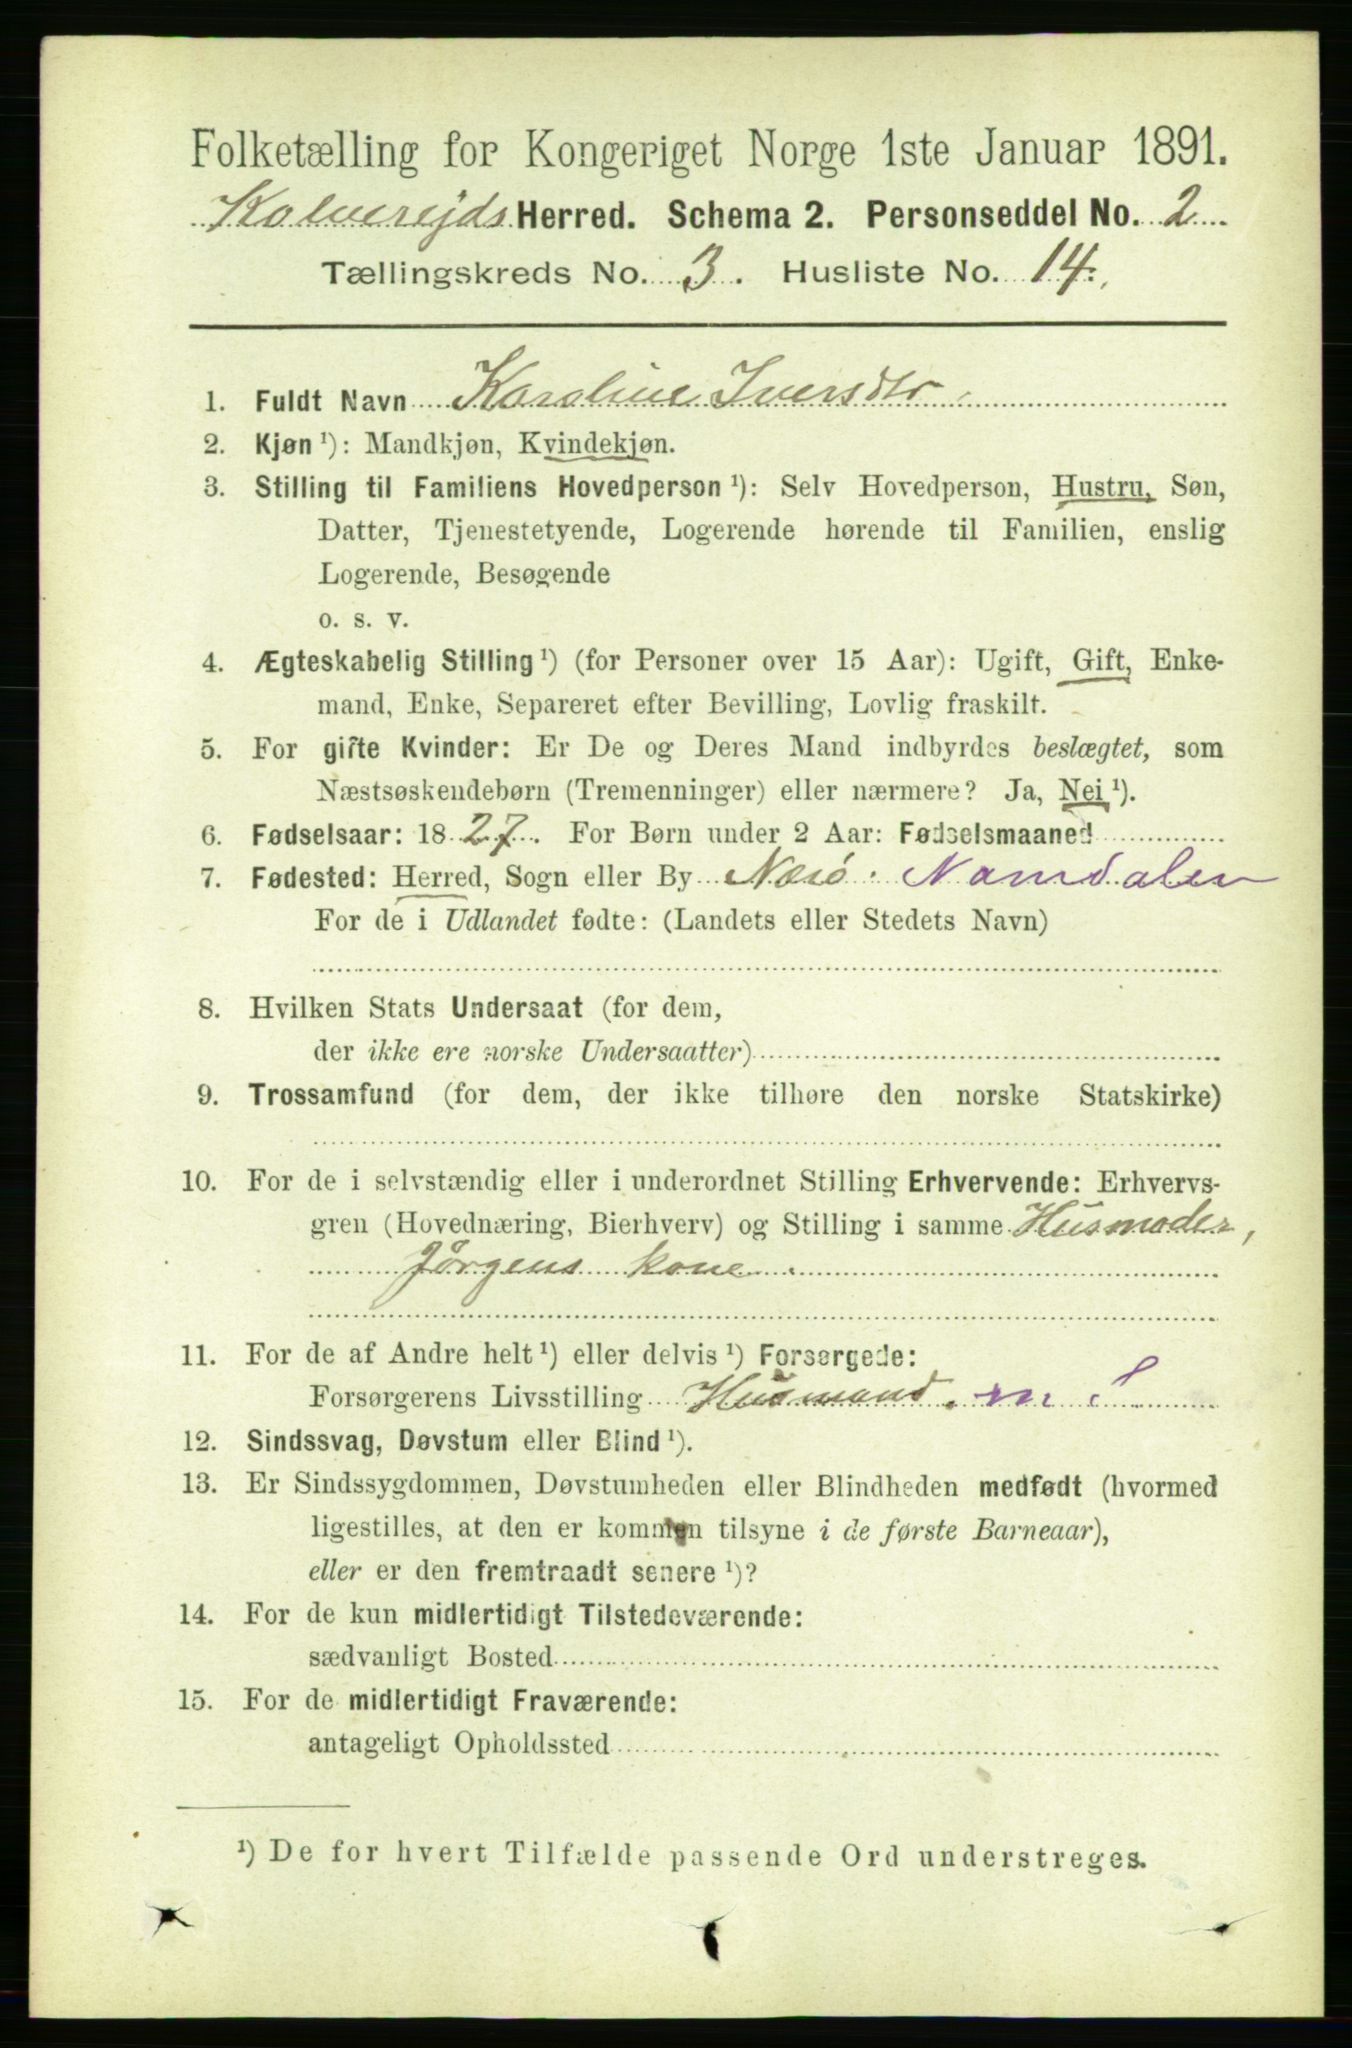 Folketælling for Kongeriget Norge 1ste Januar 1891.
Kolvereids Herred. Schema 2. Personseddel No. 2
Tællingskreds No. 3. Husliste No. 14.
1. Fuldt Navn Karoline Iversdtr
2. Kjøn ¹): Mandkjøn, Kvindekjøn.
3. Stilling til Familiens Hovedperson ¹): Selv Hovedperson, Hustru, Søn,
Datter, Tjenestetyende, Logerende hørende til Familien, enslig
Logerende, Besøgende
o. s. v.
4. Ægteskabelig Stilling ¹) (for Personer over 15 Aar): Ugift, Gift, Enke-
mand, Enke, Separeret efter Bevilling, Lovlig fraskilt.
5. For gifte Kvinder: Er De og Deres Mand indbyrdes beslægtet, som
Næstsøskendebørn (Tremenninger) eller nærmere? Ja, Nei ¹).
6. Fødselsaar: 1827. For Børn under 2 Aar: Fødselsmaaned
7. Fødested: Herred, Sogn eller By Nærö. Namdalen
For de i Udlandet fødte: (Landets eller Stedets Navn)
8. Hvilken Stats Undersaat (for dem,
der ikke ere norske Undersaatter)
9. Trossamfund (for dem, der ikke tilhøre den norske Statskirke)
10. For de i selvstændig eller i underordnet Stilling Erhvervende: Erhvervs-
gren (Hovednæring, Bierhverv) og Stilling i samme Husmoder,
Jörgens kone.
11. For de af Andre helt ¹) eller delvis ¹) Forsørgede:
Forsørgerens Livsstilling Husmand. m
12. Sindssvag, Døvstum eller Blind ¹).
13. Er Sindssygdommen, Døvstumheden eller Blindheden medfødt (hvormed
ligestilles, at den er kommen tilsyne i de første Barneaar),
eller er den fremtraadt senere ¹)?
14. For de kun midlertidigt Tilstedeværende:
sædvanligt Bosted
15. For de midlertidigt Fraværende:
antageligt Opholdssted
¹) De for hvert Tilfælde passende Ord understreges.